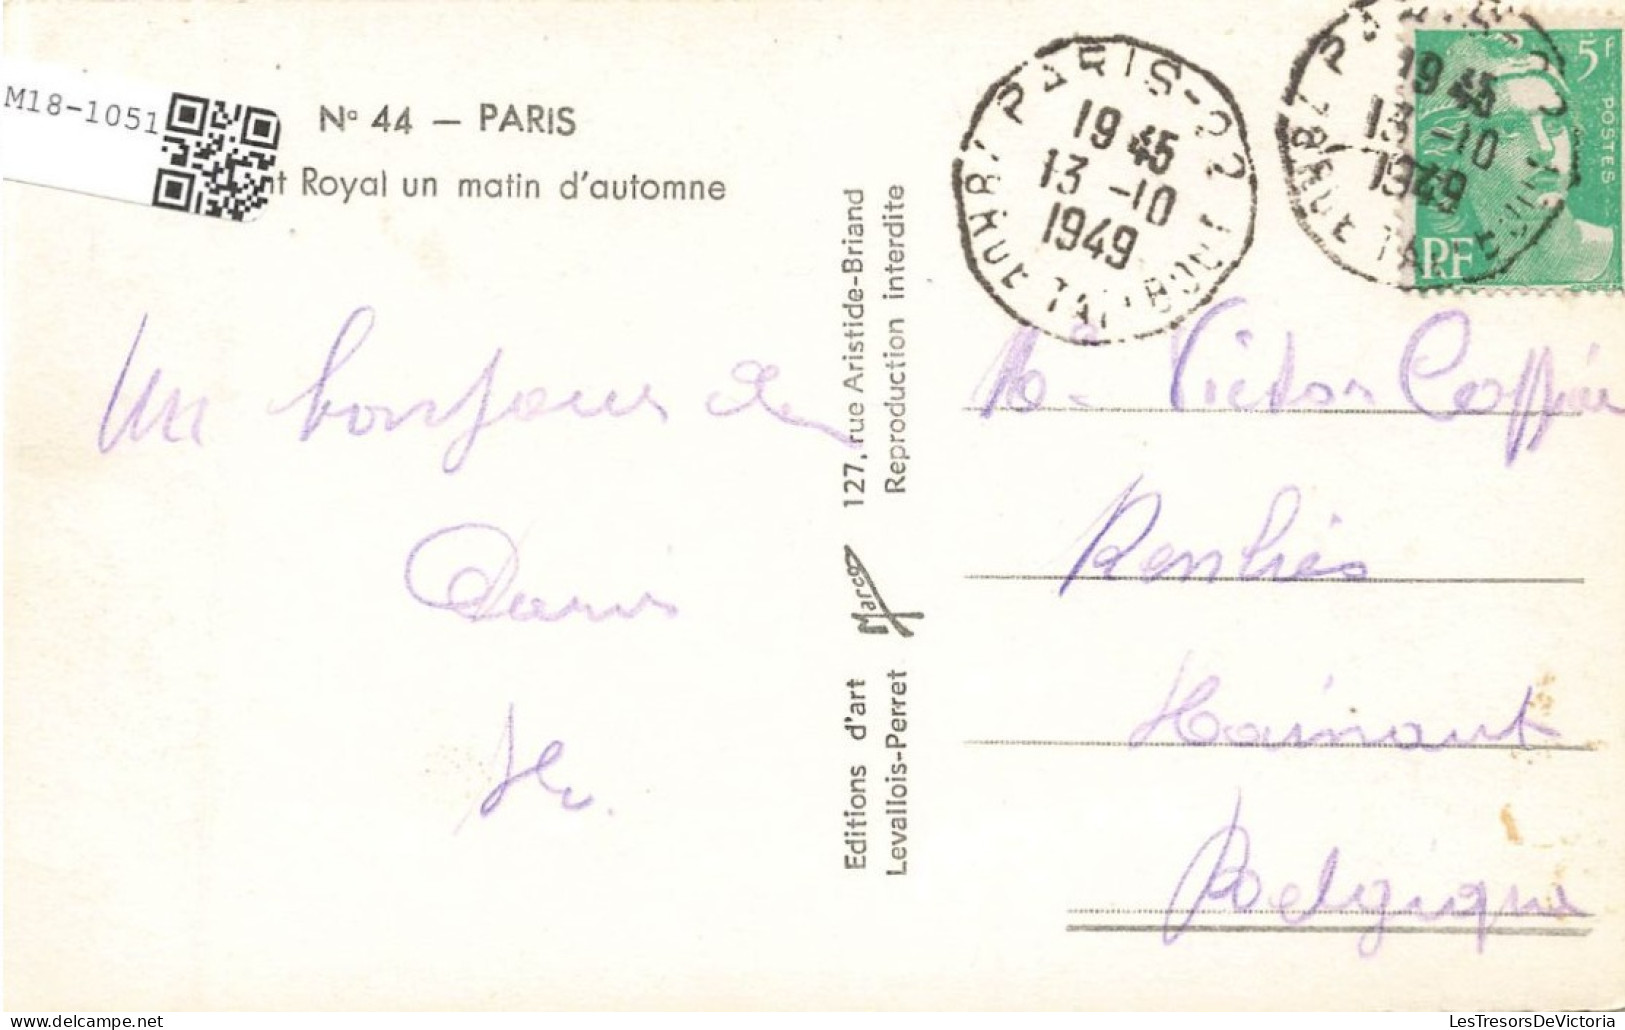 M18-1051
N° 44 — PARIS
nt Royal un matin d'automne
Un bonjour de
Paris
127, rue Aristide-Briand
Reproduction interdite
Marco
Editions d'art
Levallois-Perret
PARIS-22
19 45
13 -10
1949
R. RUE TAITBOUT
PARIS-22
19 45
13 -10
1949
RUE TAITBOUT
5F
POSTES
RF
Mr Victor
Renlies
Hainaut
Belgique
LesTresorsDeVictoria.com